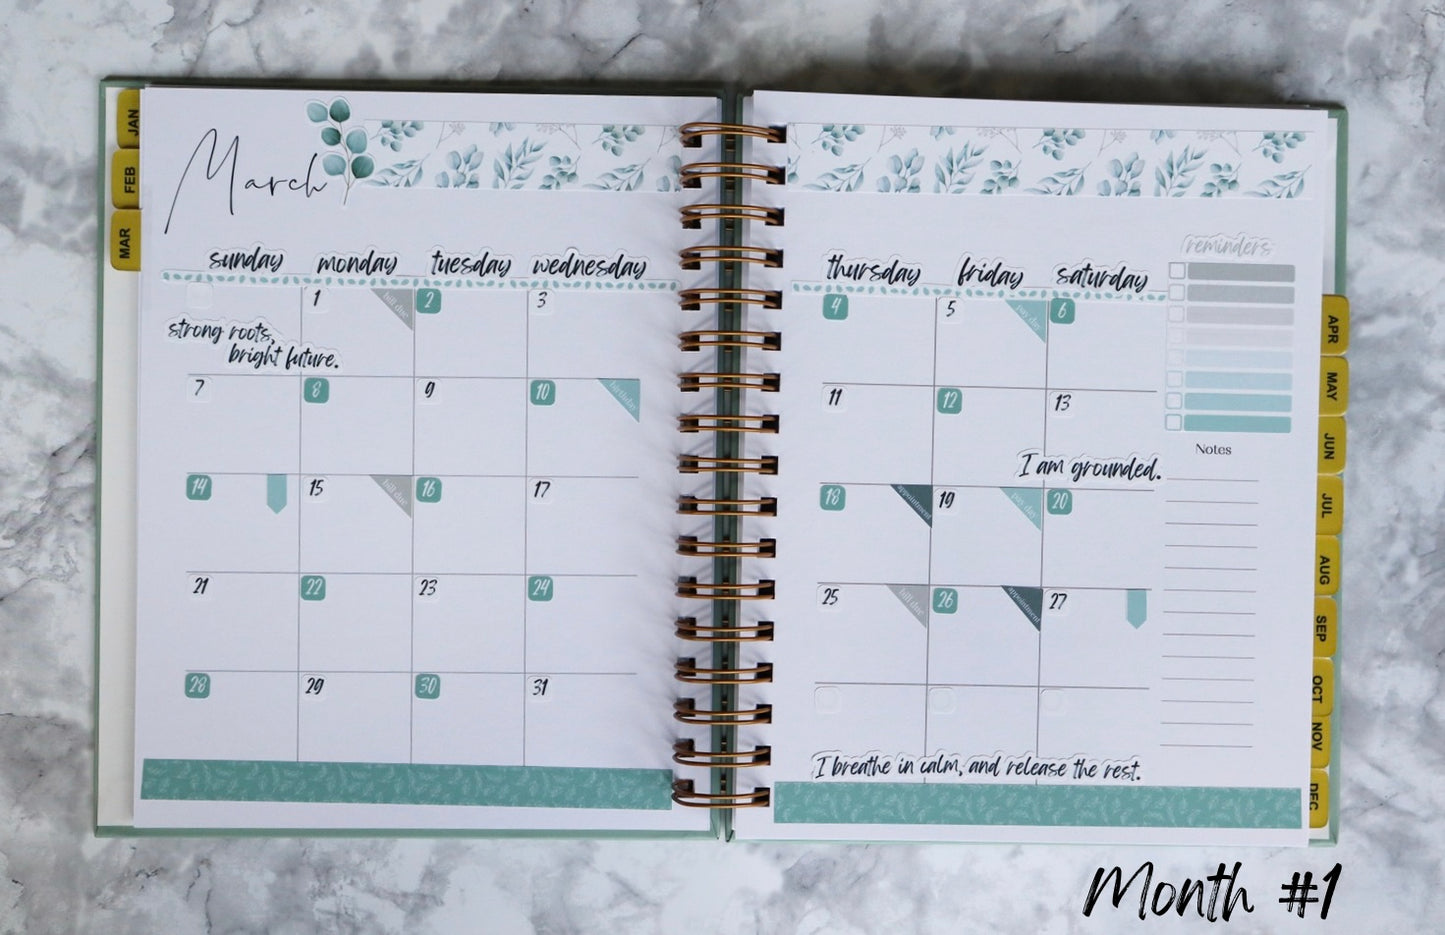 March
JAN
FEB
MAR
sunday monday tuesday wednesday thursday friday saturday
reminders
1 bill due 2 3 4 5 pay day 6
strong roots,
bright future.
7 8 9 10 birthday 11 12 13
Notes
I am grounded.
14 15 bill due 16 17 18 appointment 19 pay day 20
21 22 23 24 25 bill due 26 appointment 27
28 29 30 31
I breathe in calm, and release the rest.
APR
MAY
JUN
JUL
AUG
SEP
OCT
NOV
DEC
Month #1